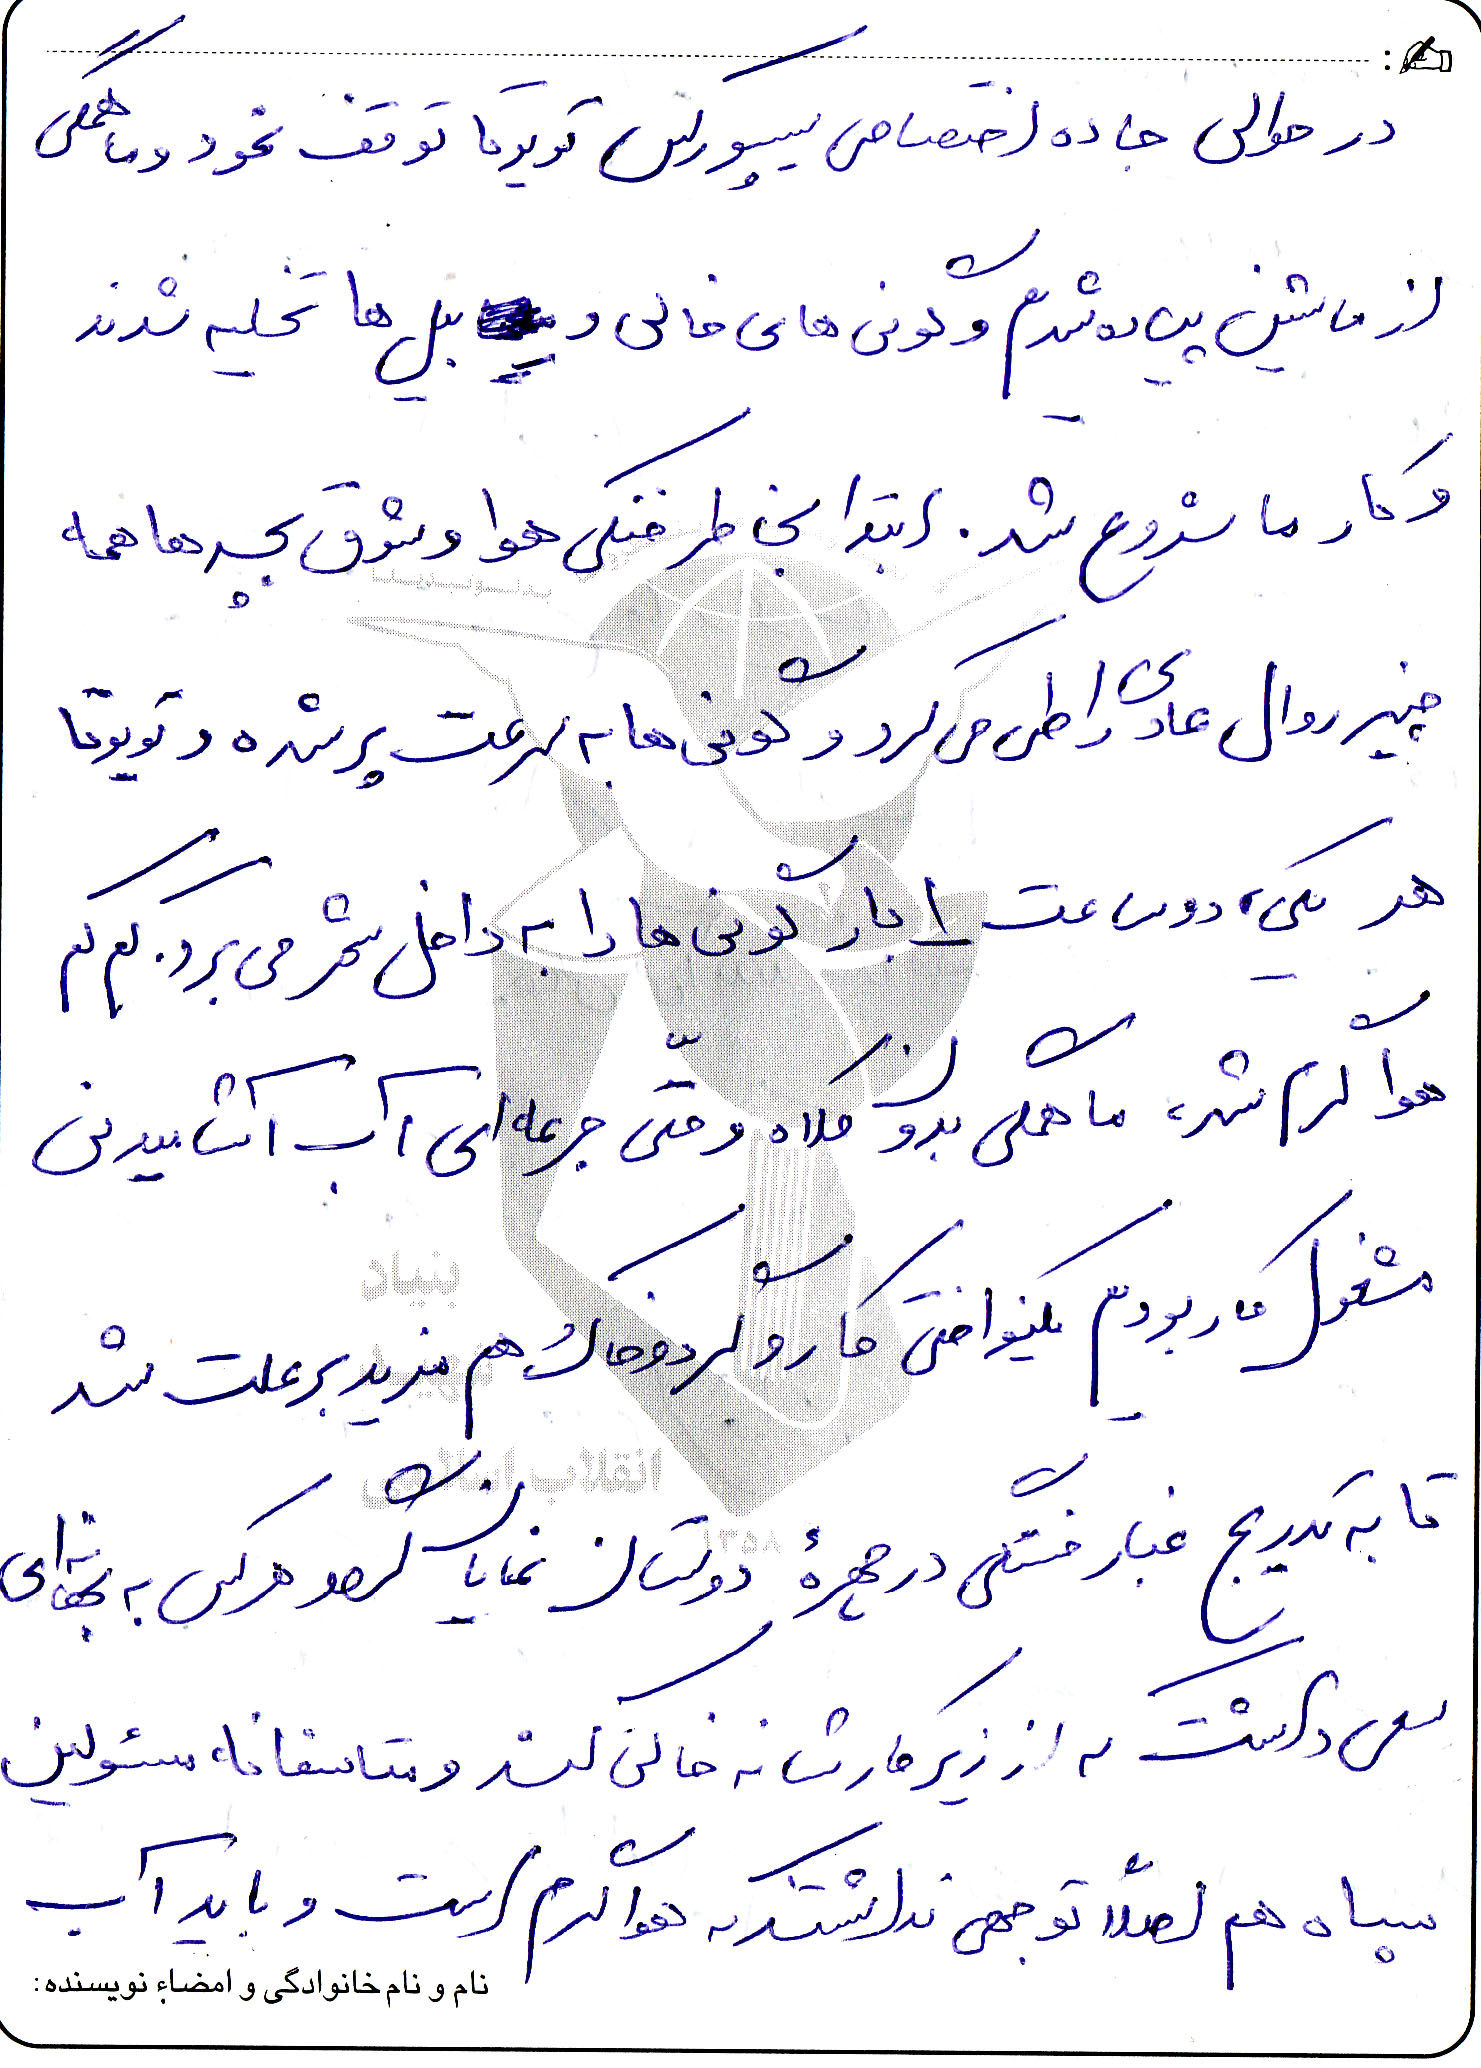 در حوالی جاده اختصاصی سیپورکس تویوتا توقف نمود و ما همگی
از ماشین پیاده شدیم و گونی های خالی و بیل ها تخلیه شدند
و کار ما شروع شد. ابتدا بخاطر خنکی هوا و شوق بچه ها همه
چیز روال عادی را طی می کرد و گونی ها به سرعت پر شده و تویوتا
هر یکی، دو ساعت ۱ بار گونی ها را به داخل شهر می برد. کم کم
هوا گرم شد، ما همگی بدون کلاه و حتّی جرعه ای آب آشامیدنی
مشغول کار بودیم یکنواختی کار و گرد و خاک هم مزید بر علت شد
تا به تدریج غبار خستگی در چهرهٔ دوستان نمایان گردد و هر کس به بهانه ای
سعی داشت که از زیر کار شانه خالی کند و متاسفانه مسئولین
سپاه هم اصلاً توجهی نداشتند که هوا گرم است و باید آب
نام و نام خانوادگی و امضاء نویسنده:
بنیاد
شهید
انقلاب اسلامی
۱۳۵۸